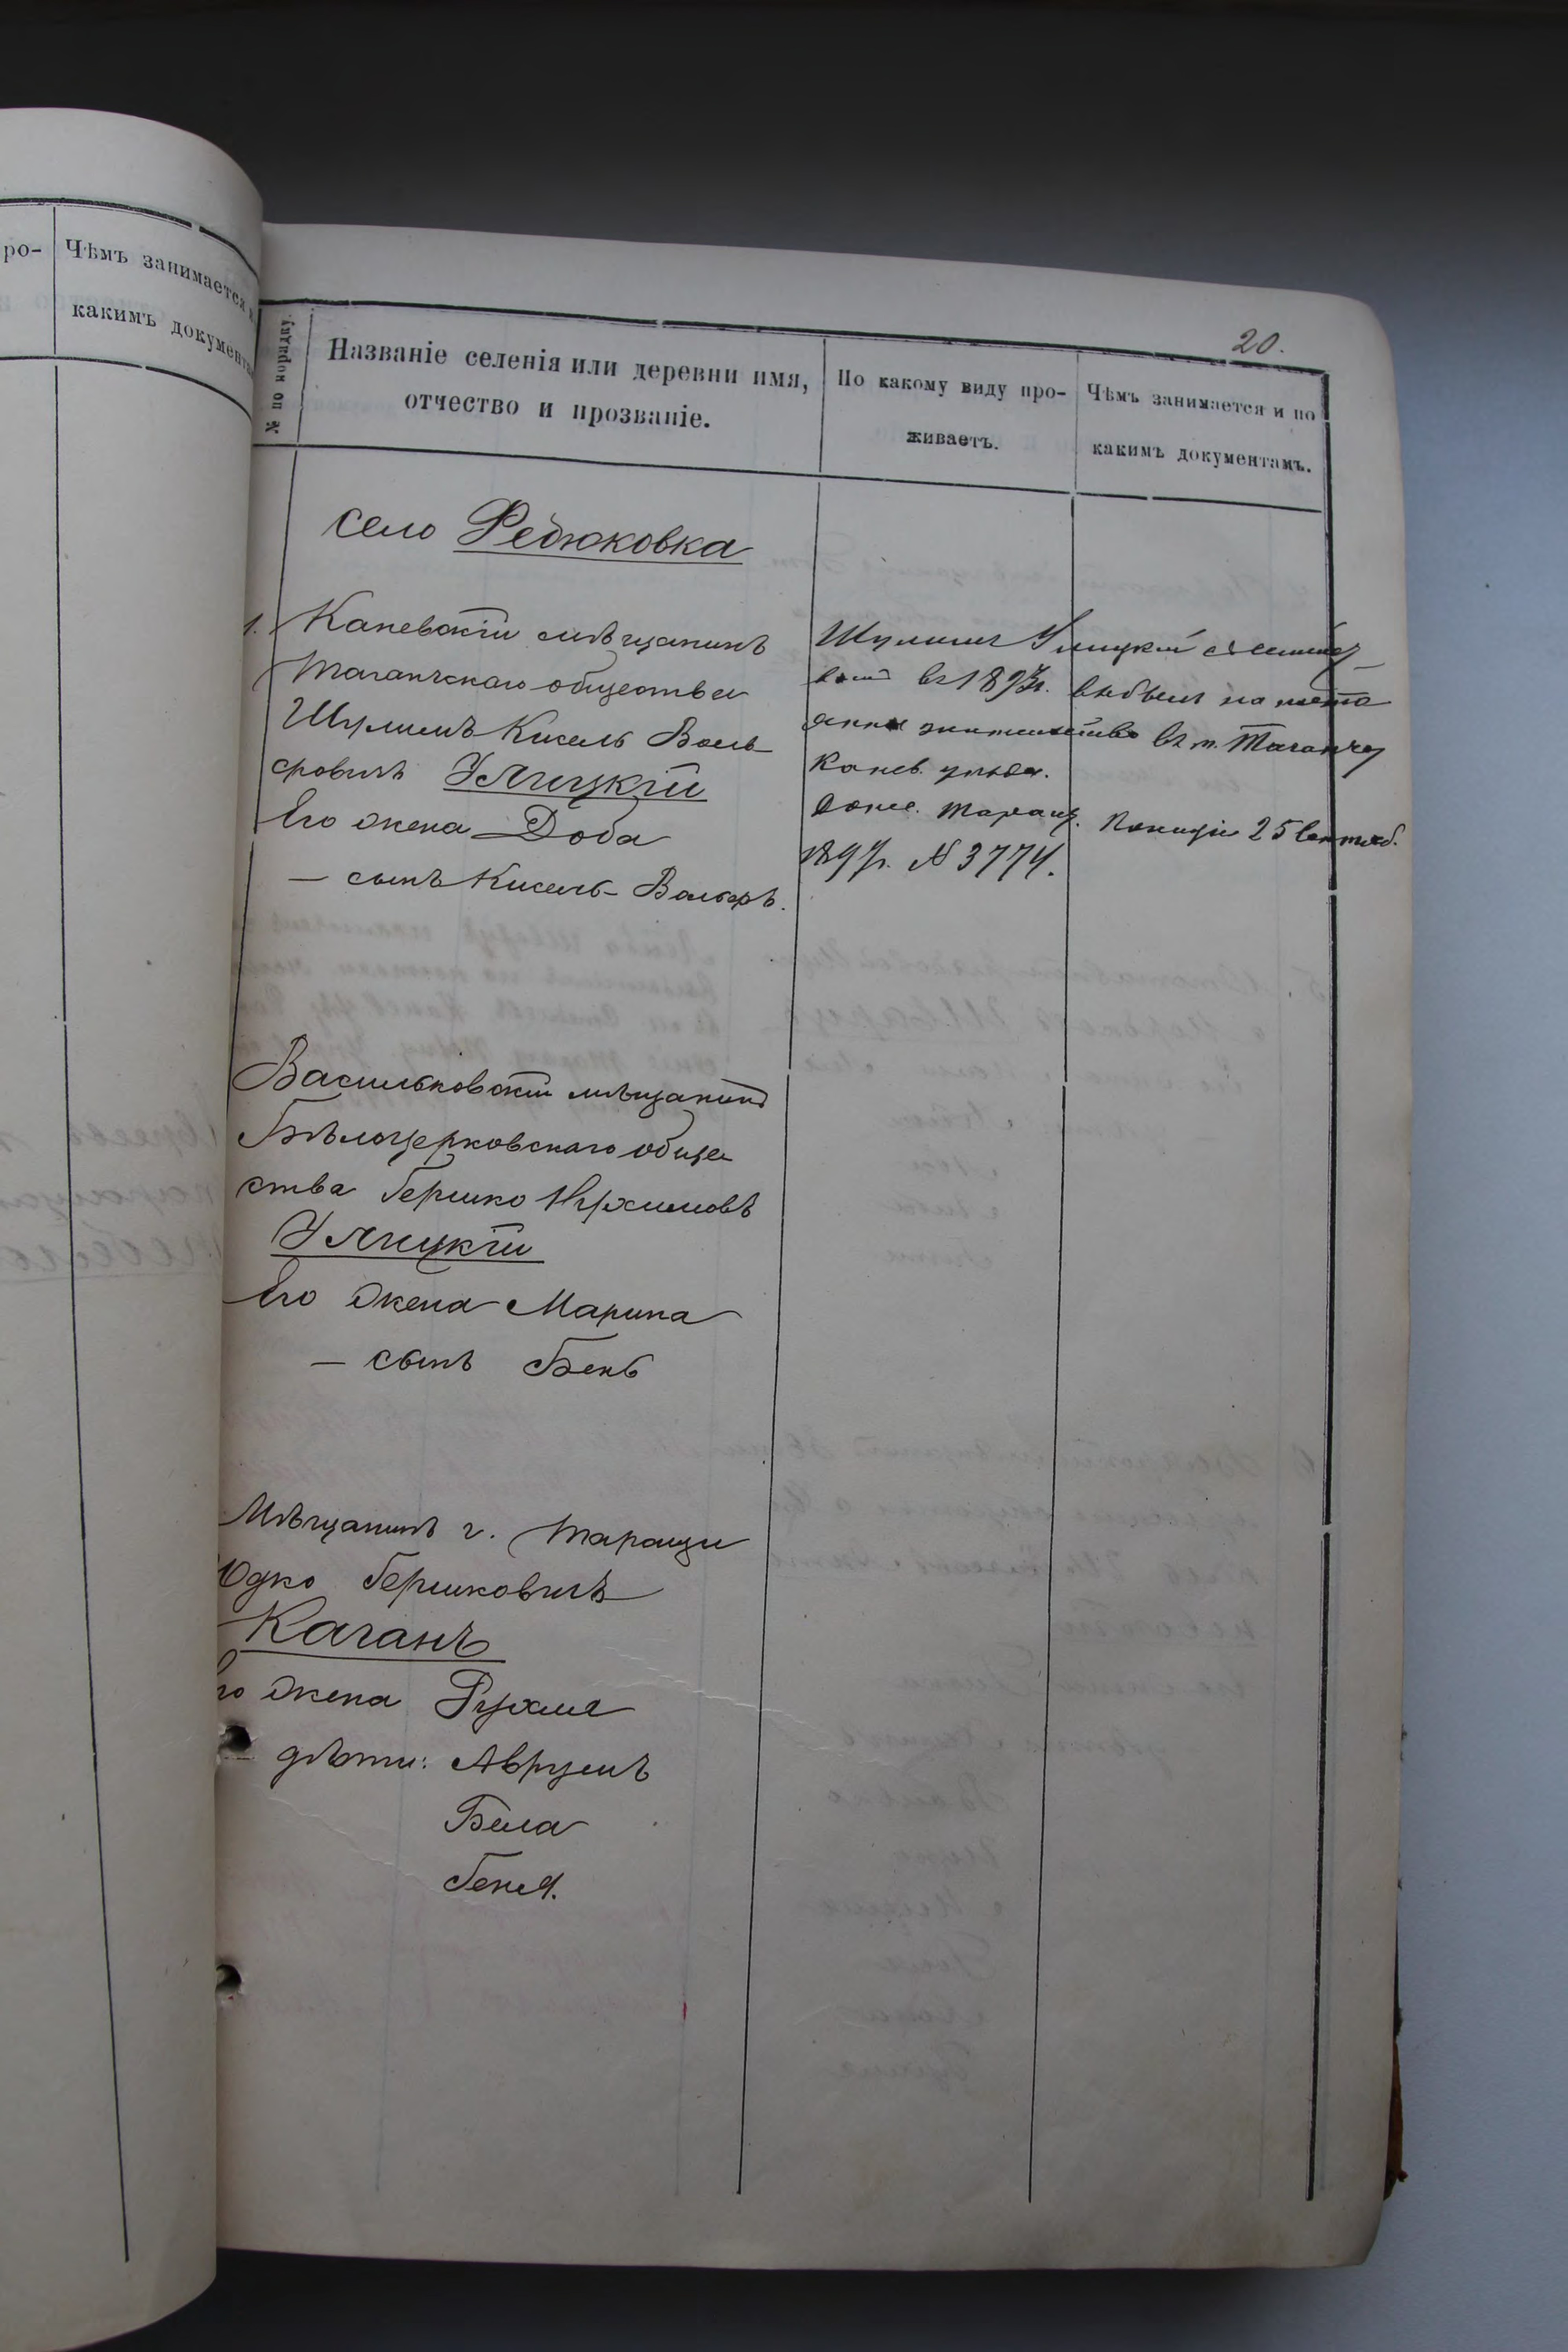 ро-
Чѣмъ занимается
какимъ документа
20.
№ по порядку
Названіе селенія или деревни имя,
отчество и прозваніе.
По какому виду про-
живаетъ.
Чѣмъ занимается и по
какимъ документамъ.
село Федюковка
1. Каневскій мѣщанинъ
Таганчскаго общества
Шулимъ Кисель Воль-
фовичъ Улицкій
Его жена Доба
— сынъ Кисель-Вольфъ.
Шулимъ Улицкій съ семей-
въ 1897г. выбылъ на посто
янное жительство въ м. Таганчу
Канев. уѣзда.
Донес. Таращ. Полиціи 25 Сентяб.
1897г. № 3774.
Васильковскій мѣщанинъ
Бѣлоцерковскаго обще
ства Гершко Нухимовъ
Улицкій
Его жена Марина
— сынъ Бень
Мѣщанинъ г. Таращи
Юдко Гершковичъ
Каганъ
го жена Рухля
— дѣти: Аврумъ
Бела
Геня.